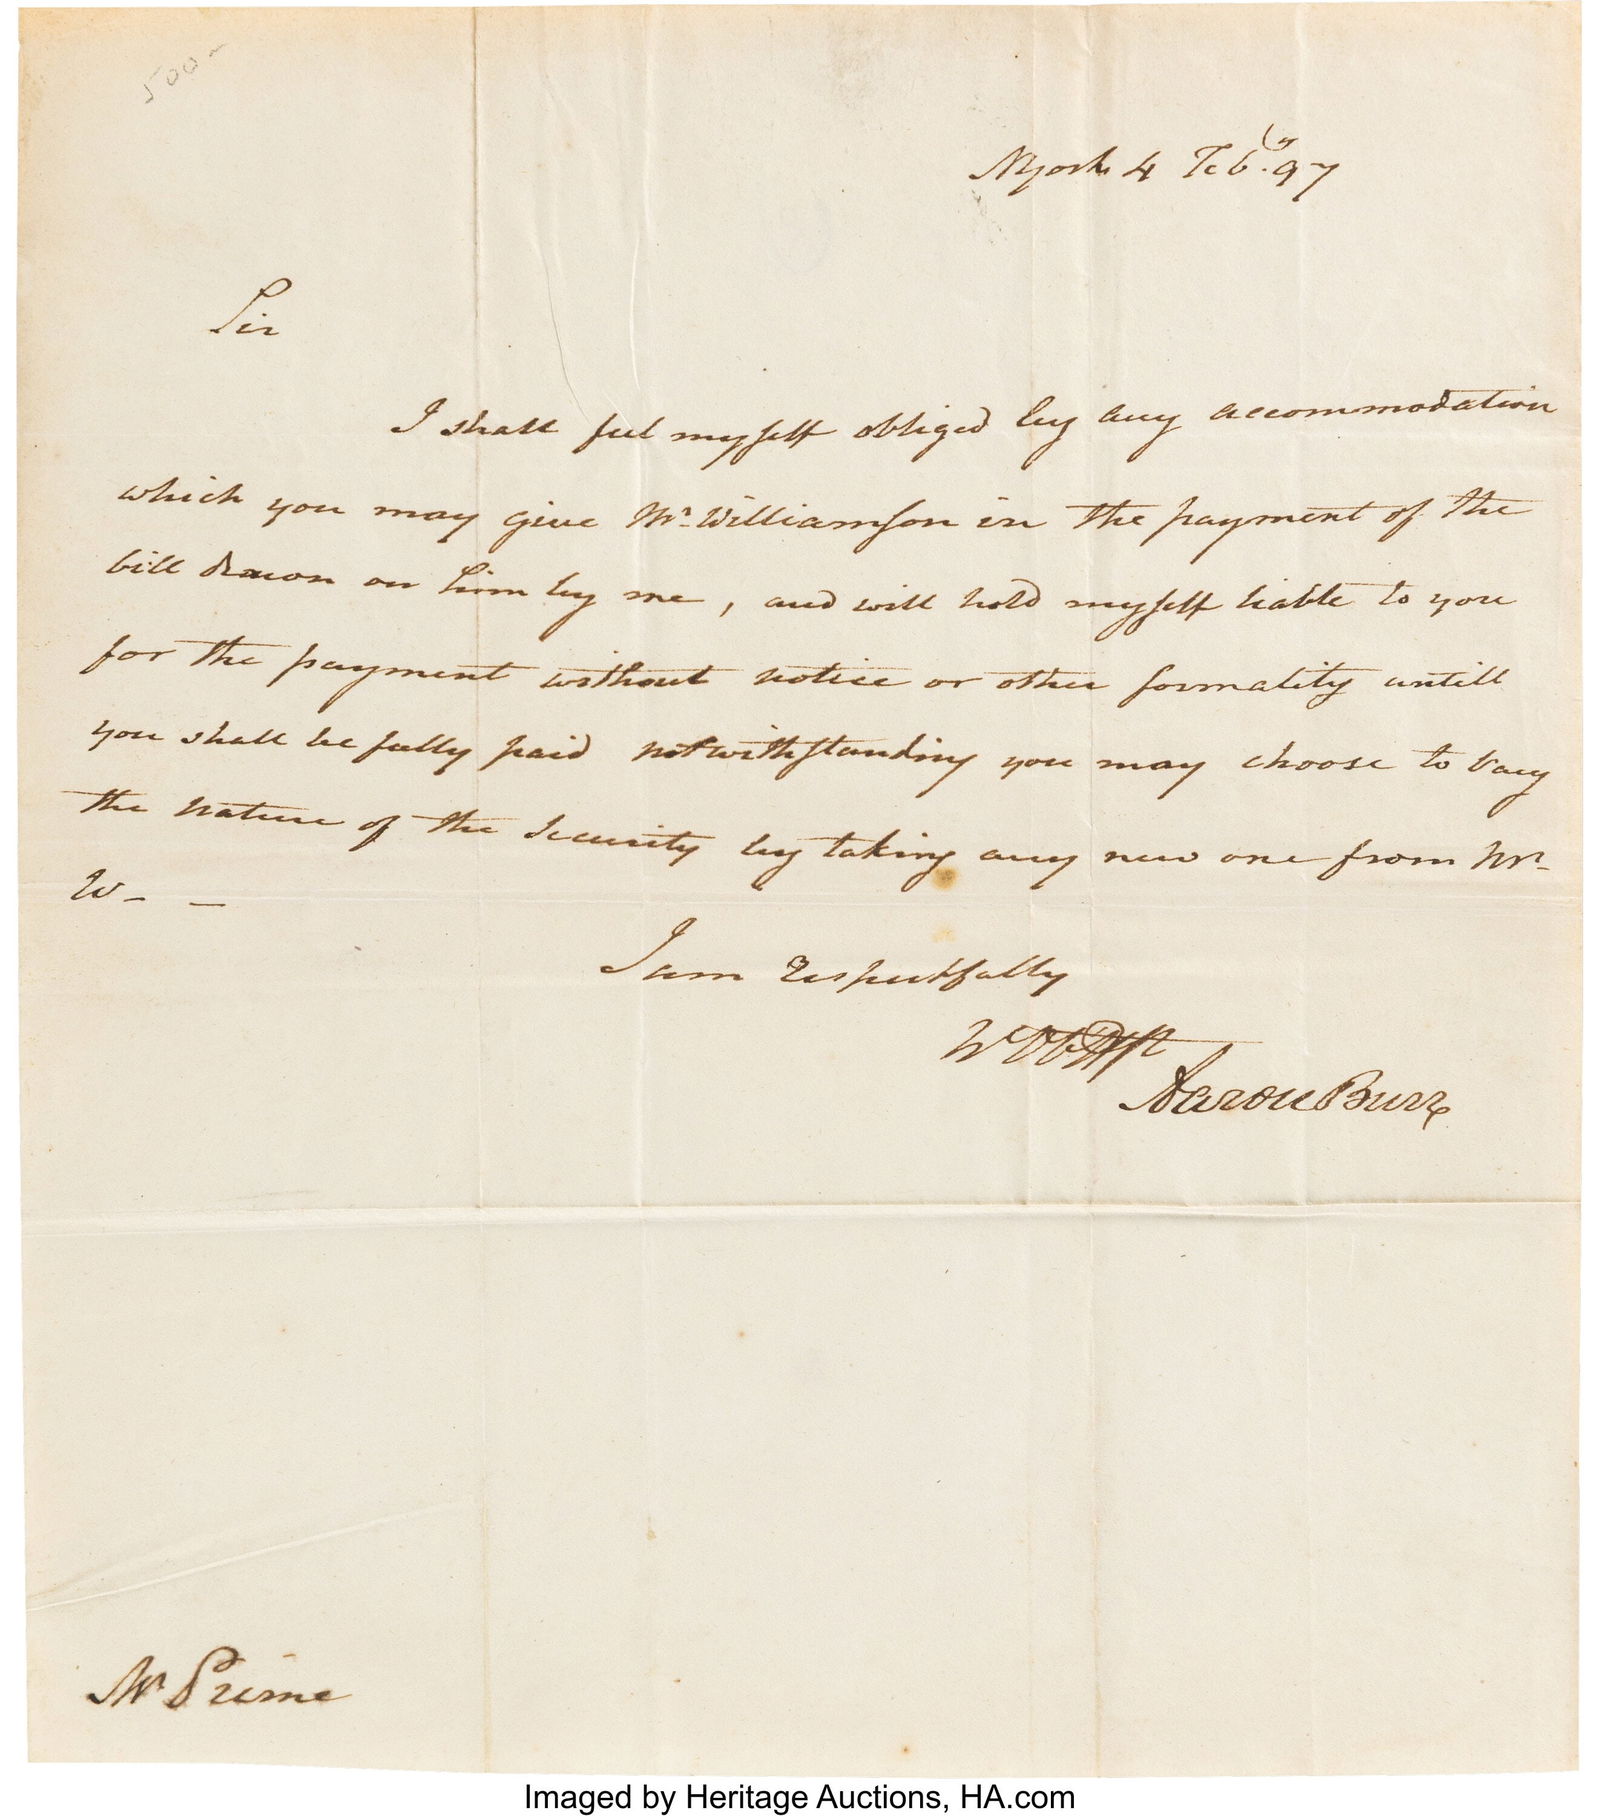 500-
NYork 4 Feby. 97
Sir
I shall feel myself obliged by any accommodation
which you may give Mr. Williamson in the payment of the
bill drawn on him by me, and will hold myself liable to you
for the payment without notice or other formality untill
you shall be fully paid notwithstanding you may choose to vary
the nature of the security by taking any new one from Mr.
W- -
I am respectfully
Aaron Burr
Mr Prime
Imaged by Heritage Auctions, HA.com